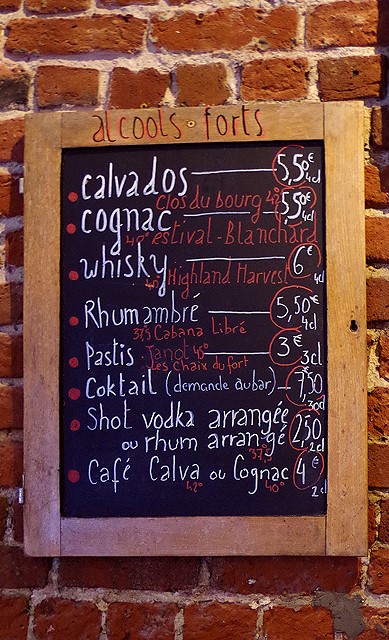 alcools forts
calvados 5,50€ 4cl
clos du bourg 42°
cognac 5,50€ 4cl
40° estival-Blanchard
whisky 6€ 4cl
40° Highland Harvest
Rhum ambré 5,50€ 4cl
37,5 Cabana Libré
Pastis Janot 45° 3€ 3cl
Les Chaix du fort
Coktail (demande au bar) 7,50 30cl
Shot vodka arrangée
ou rhum arrangé 2,50 2cl
37,5
Café Calva ou Cognac 4€ 2cl
42° 40°